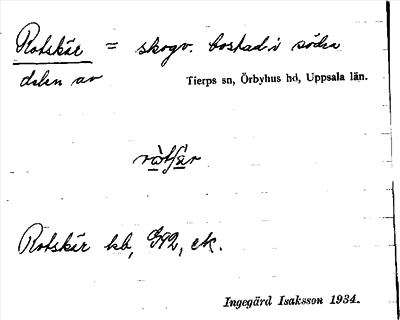 Rotskär = skogv. bostad i södra
delen av Tierps sn, Örbyhus hd, Uppsala län.
Rotskär kb, ek.
Ingegärd Isaksson 1934.